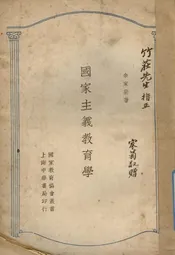 竹莊先生 指正
家菊敬贈
余家菊著
國家主義教育學
國家教育協會叢書
上海中華書局印行